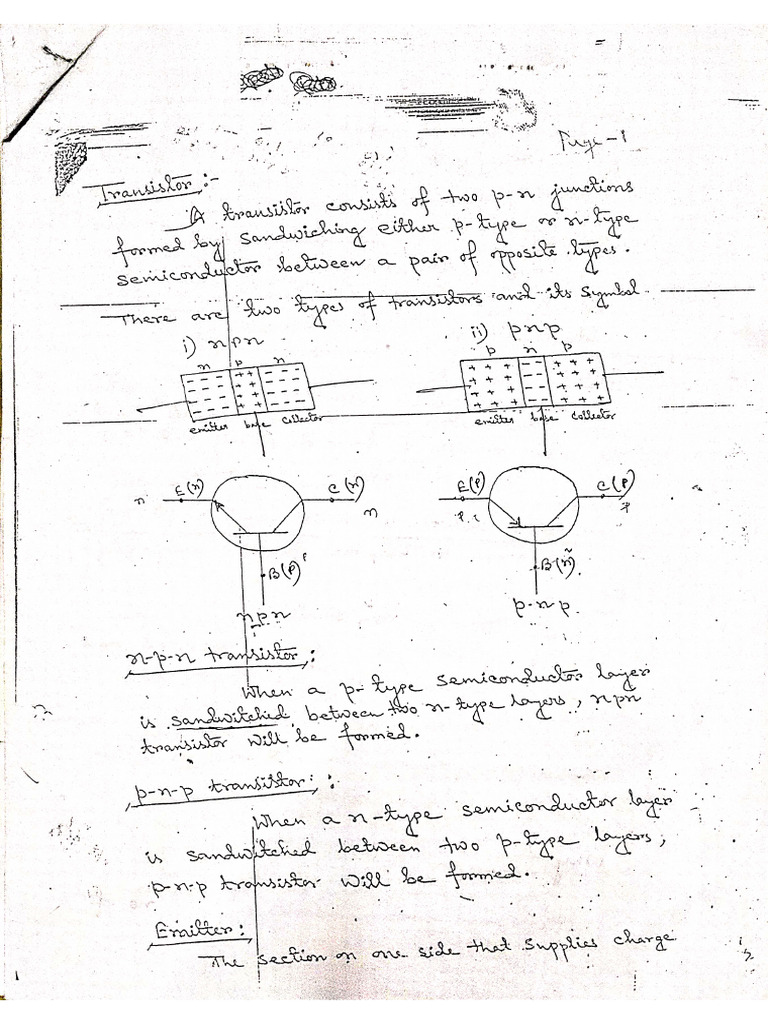 Page-1
Transistor:-
A transistor consists of two p-n junctions
formed by sandwiching either p-type or n-type
semiconductor between a pair of opposite types.
There are two types of transistors and its symbol
i) npn ii) pnp
n p n p n p
emitter base collector emitter base collector
E(n) C(n) E(p) C(p)
n n p p
B(p) B(n)
npn p-n-p
n-p-n transistor:
When a p-type semiconductor layer
is sandwitched between two n-type layers, npn
transistor will be formed.
p-n-p transistor:
When a n-type semiconductor layer
is sandwitched between two p-type layers,
p-n-p transistor will be formed.
Emitter:
The section on one side that supplies charge